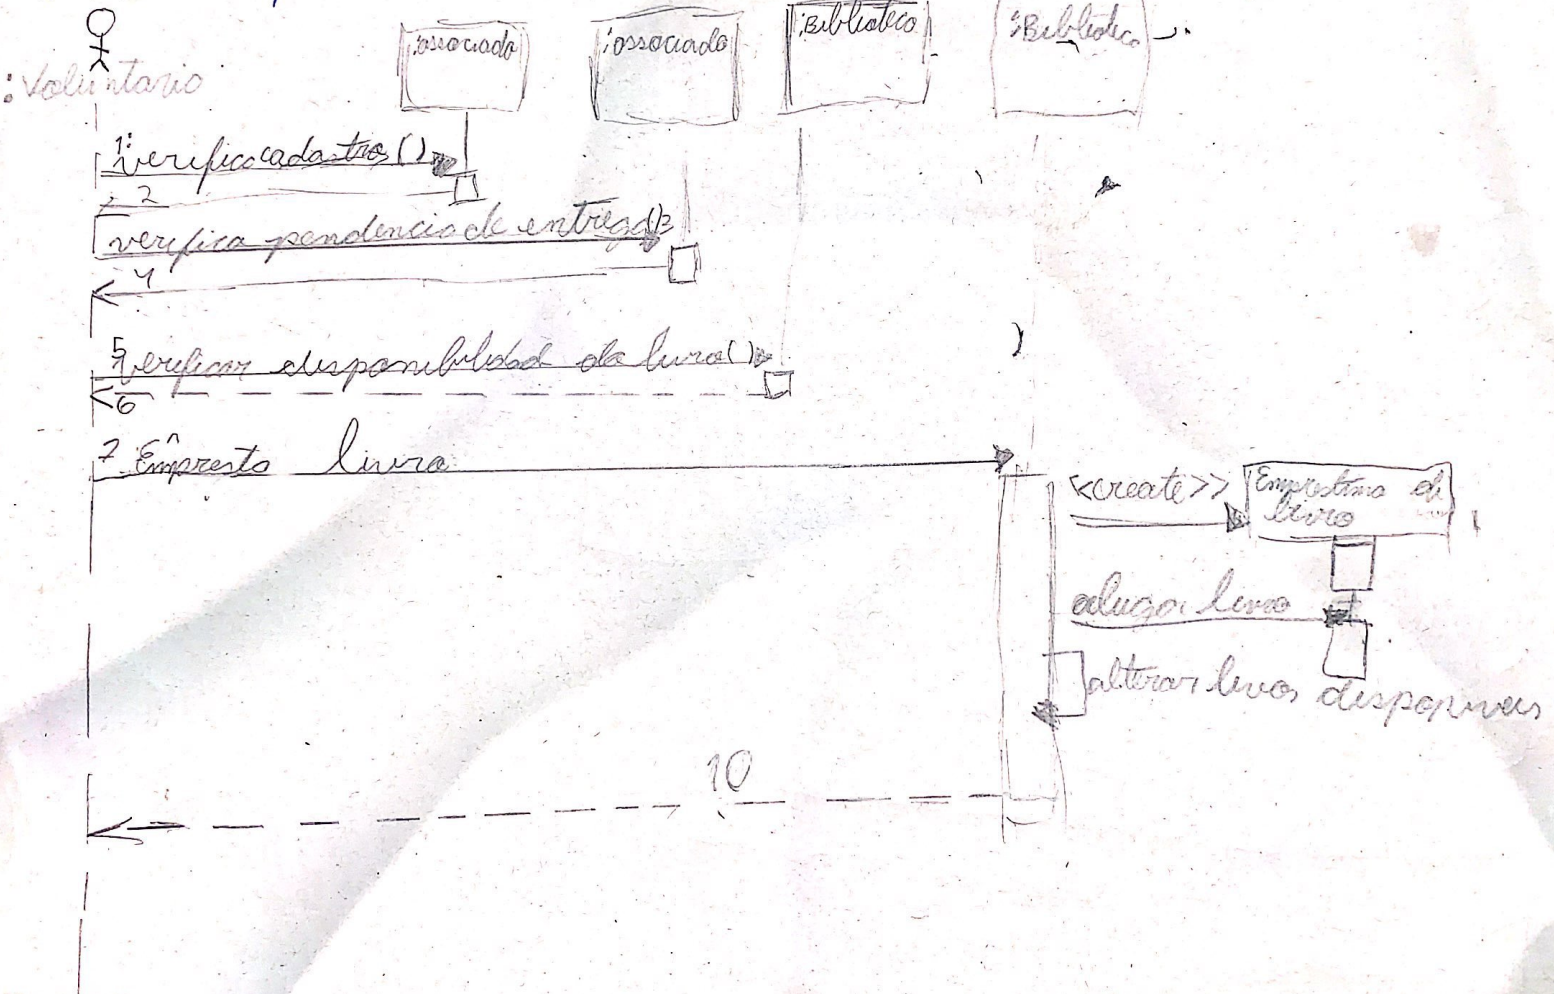 :Voluntario
:associado
:associado
:Biblioteca
:Biblioteca
1:
verificacadastro()
2
verifica pendencia de entrega()3
4
5
verificar disponibilidad do livro()
6
7 Empresta livro
<create>>
Emprestimo de
livro
aluga livro
alterar livros disponiveis
10